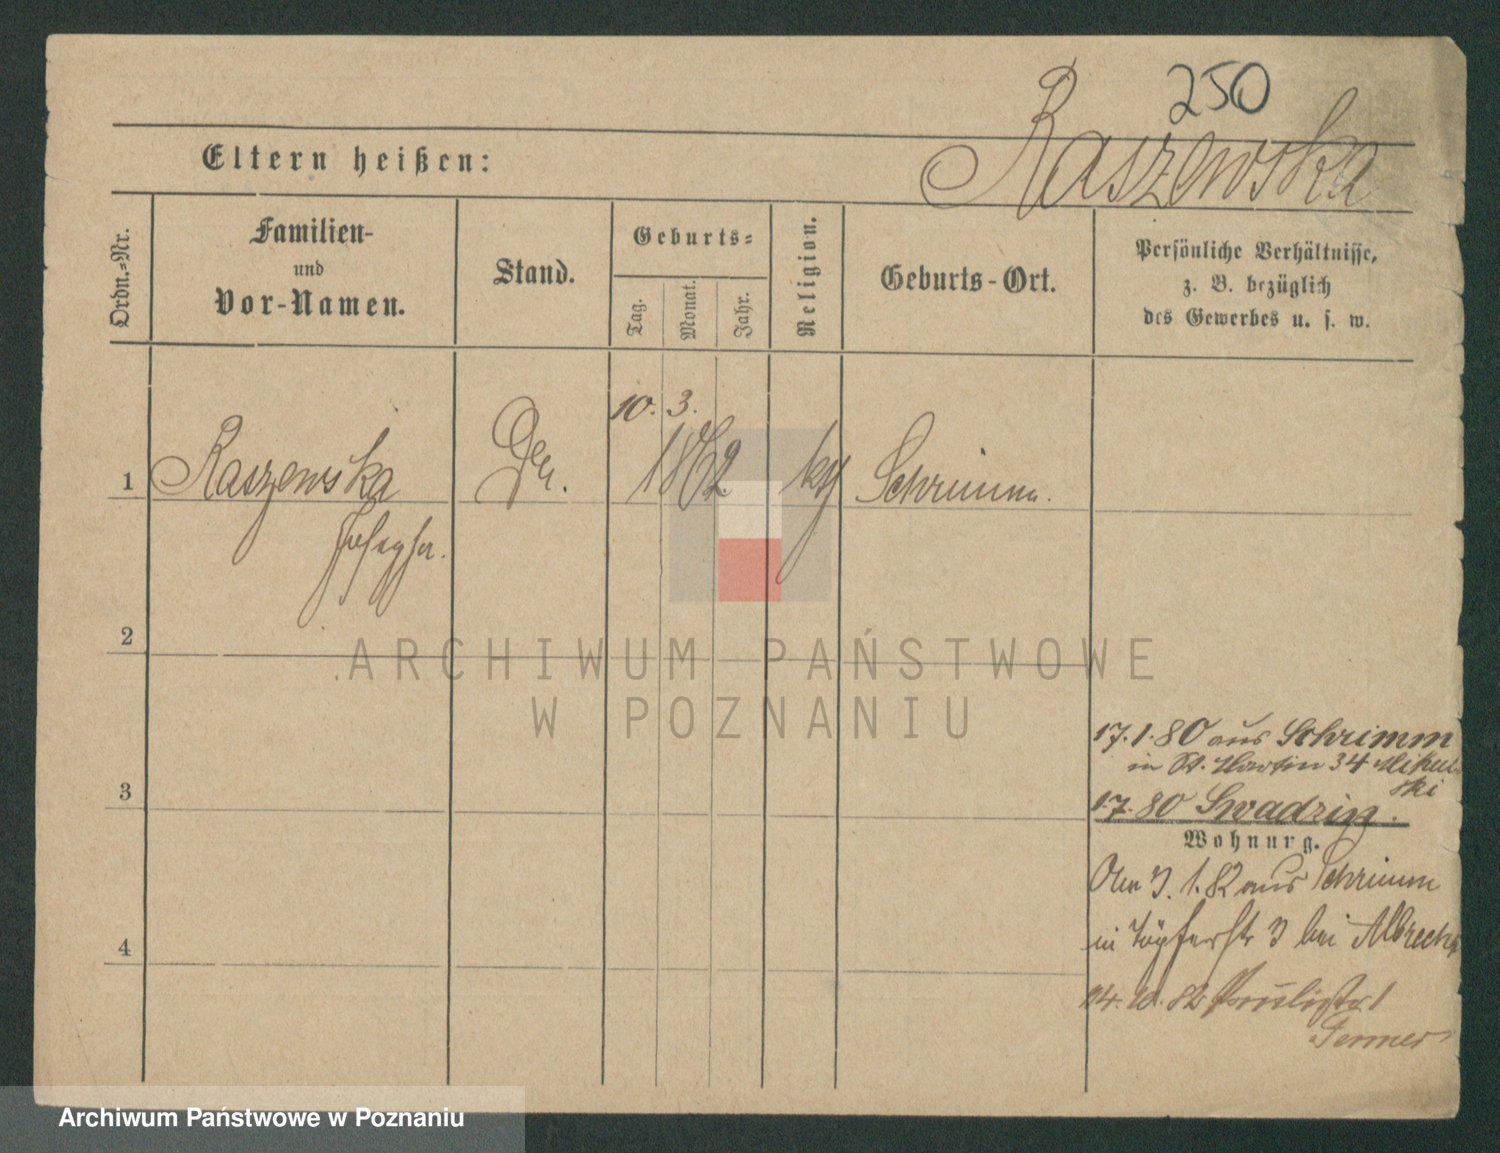 250
Raszewska
Eltern heißen:
Ordn.-Nr.
Familien-
und
Vor-Namen.
Stand.
Geburts-
Tag.
Monat.
Jahr.
Religion.
Geburts-Ort.
Persönliche Verhältnisse,
z. B. bezüglich
des Gewerbes u. s. w.
10. 3.
1 Raszewska 1862 Schrimm.
Josepha.
2
ARCHIWUM PAŃSTWOWE
W POZNANIU
17.1.80 aus Schrimm
in St. Martin 34 Mikul
ski
3
80 Swadzin.
Wohnung.
3. 1. 82 aus Schrimm
in Töpferstr 3 bei Albrecht
4
10. 82
Archiwum Państwowe w Poznaniu